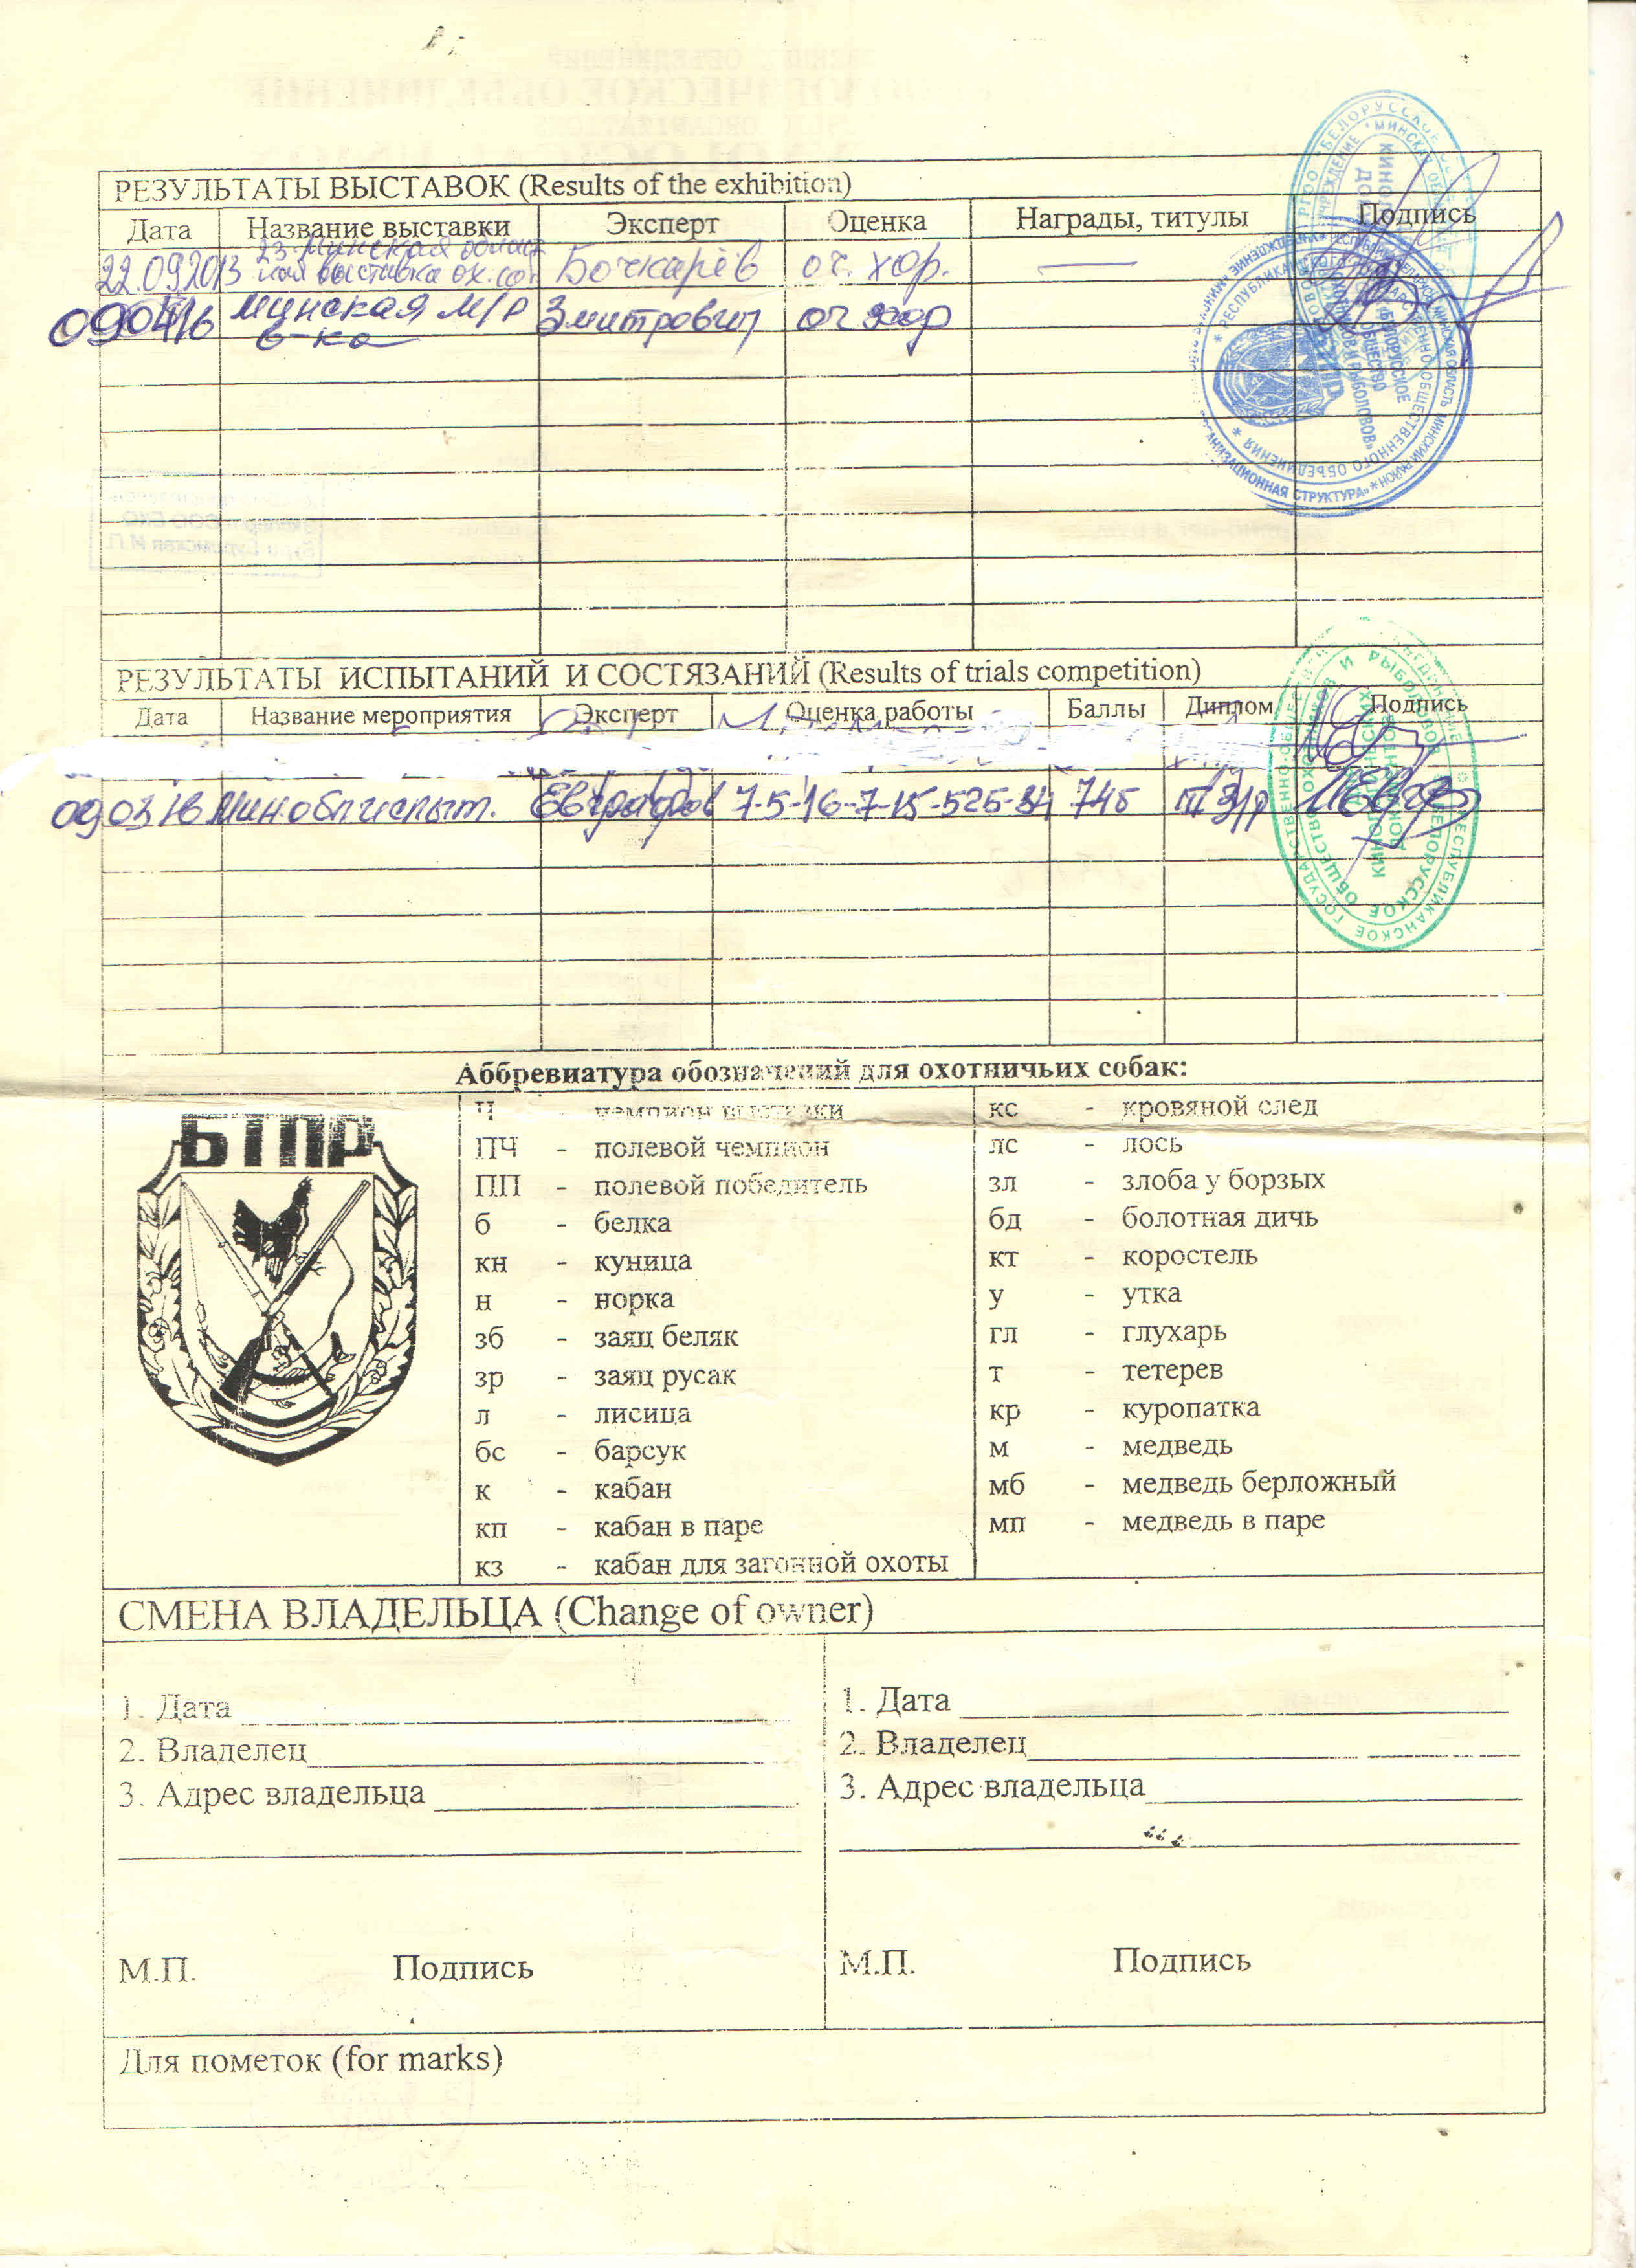 РЕЗУЛЬТАТЫ ВЫСТАВОК (Results of the exhibition)
Дата Название выставки Эксперт Оценка Награды, титулы Подпись
22.09.2013 23 Минская област
ная выставка ох. со Бочкарёв оч. хор. —
090416 Минская м/р Змитрович оч хор
в-ка
РЕЗУЛЬТАТЫ ИСПЫТАНИЙ И СОСТЯЗАНИЙ (Results of trials competition)
Дата Название мероприятия Эксперт Оценка работы Баллы Диплом Подпись
090316 Миноблиспыт. Евграфов 745
Аббревиатура обозначений для охотничьих собак:
БТПР
Ч - чемпион выставки
ПЧ - полевой чемпион
ПП - полевой победитель
б - белка
кн - куница
н - норка
зб - заяц беляк
зр - заяц русак
л - лисица
бс - барсук
к - кабан
кп - кабан в паре
кз - кабан для загонной охоты
кс - кровяной след
лс - лось
зл - злоба у борзых
бд - болотная дичь
кт - коростель
у - утка
гл - глухарь
т - тетерев
кр - куропатка
м - медведь
мб - медведь берложный
мп - медведь в паре
СМЕНА ВЛАДЕЛЬЦА (Change of owner)
1. Дата
2. Владелец
3. Адрес владельца
М.П. Подпись
1. Дата
2. Владелец
3. Адрес владельца
М.П. Подпись
Для пометок (for marks)